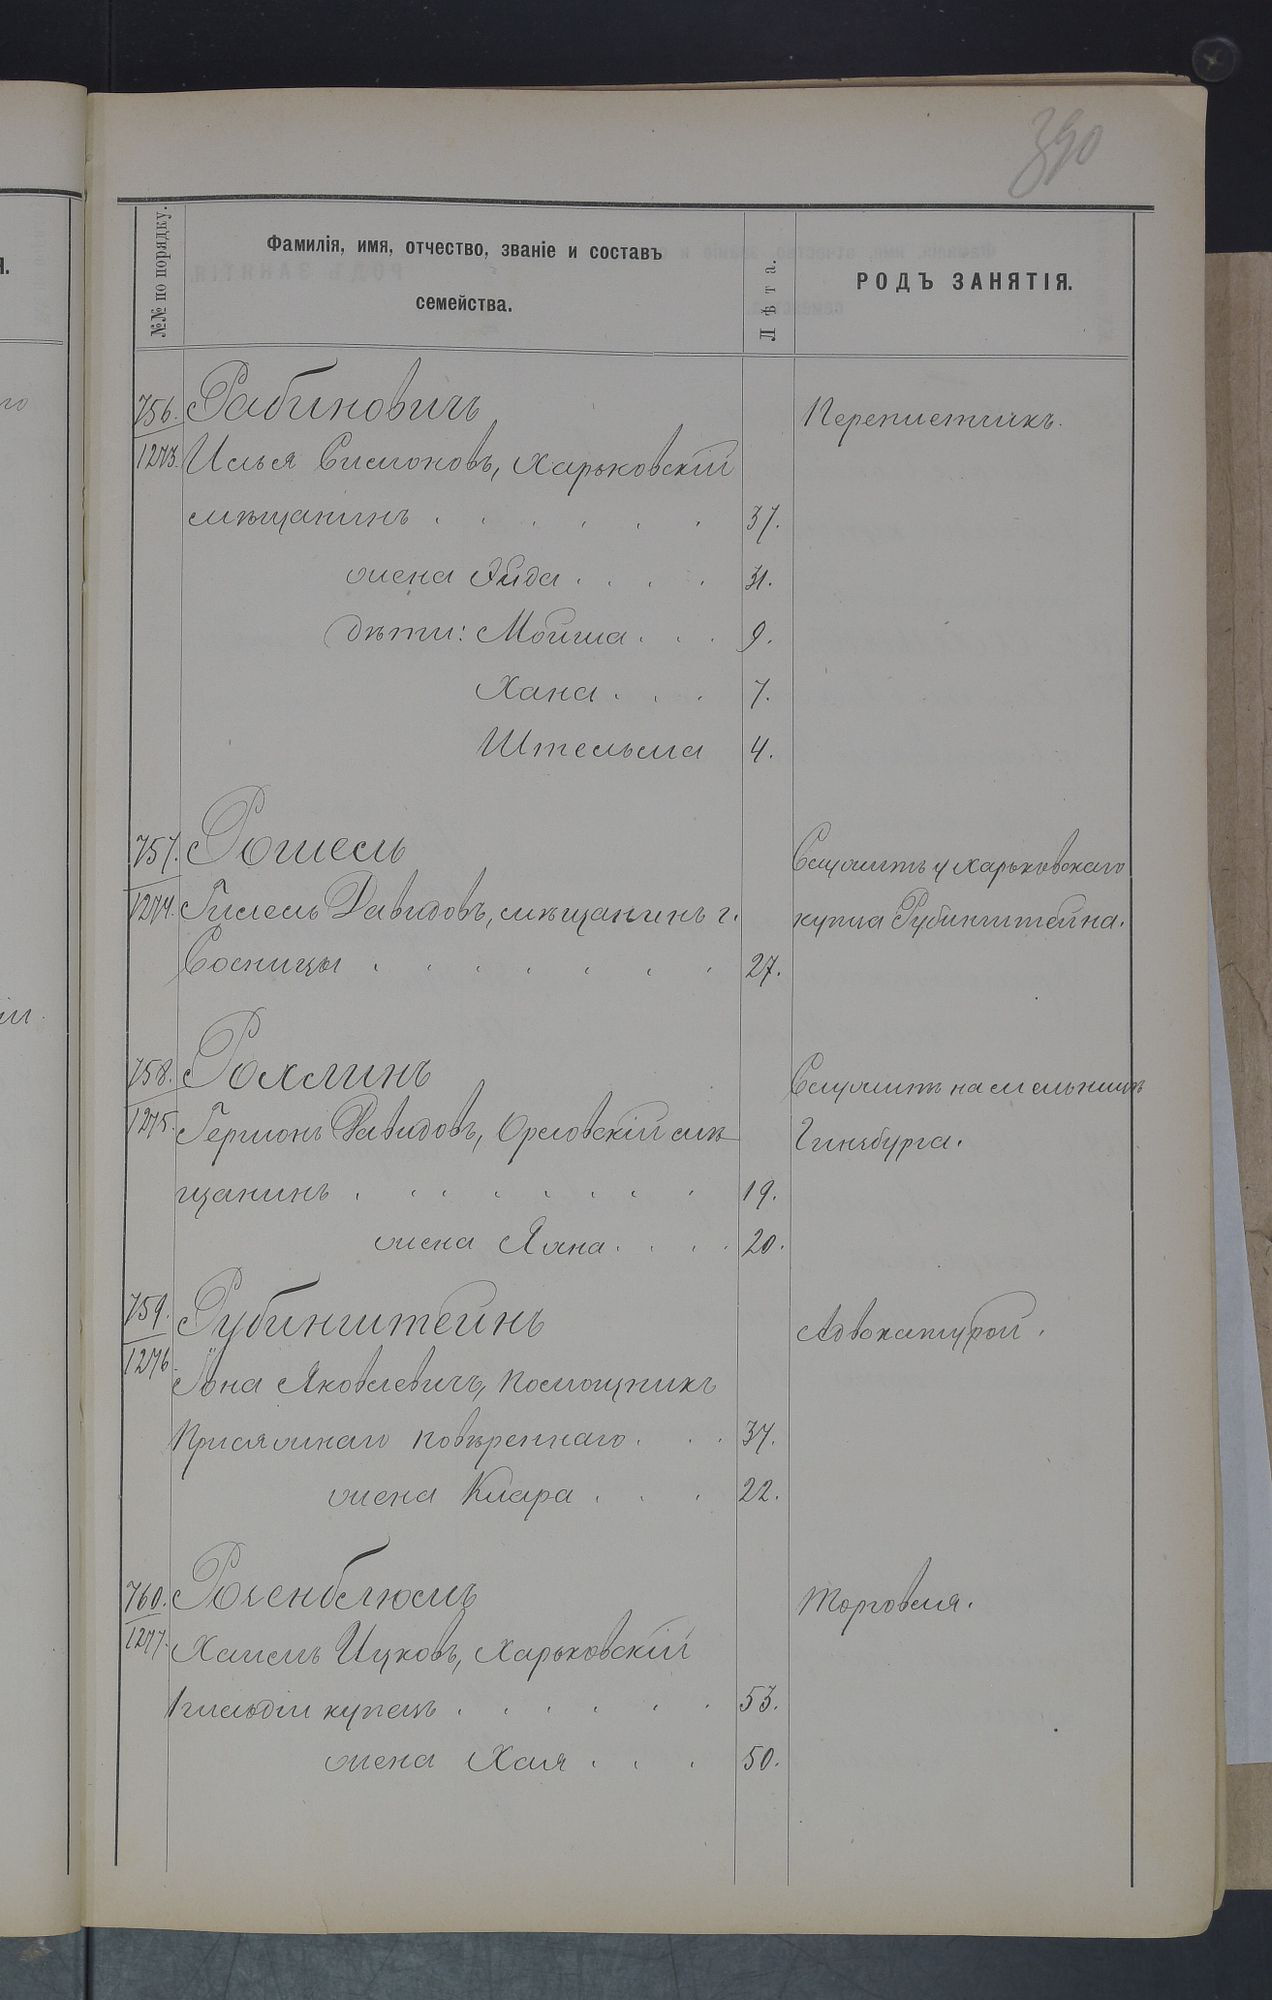 390
№№ по порядку.
Фамилія, имя, отчество, званіе и составъ
семейства.
Лѣта.
РОДЪ ЗАНЯТІЯ.
756. Рабиновичъ Переписчикъ.
1273. Илья Симоновъ, Харьковскій
мѣщанинъ . . . . . . 37.
жена Эйда . . . . 31.
дѣти: Мойша . . . 9.
Хана . . . 7.
Штельма 4.
757. Рошель Служитъ у харьковскаго
1274. Гилель Давидовъ, мѣщанинъ г. купца Рубинштейна.
Сосницы . . . . . . . . 27.
758. Рохлинъ Служитъ на мельницѣ
1275. Герионъ Давидовъ, Орловскій мѣ Гинзбурга.
щанинъ . . . . . . . . 19.
жена Анна . . . . 20.
759. Рубинштейнъ Адвокатурой.
1276. Іона Яковлевичъ, помощникъ
Присяжнаго повѣреннаго . . . 37.
жена Клара . . . 22.
760. Розенблюмъ Торговля.
1277. Хаимъ Ицковъ, Харьковскій
1 гильдіи купецъ . . . . . . 53.
жена Хая . . . 50.